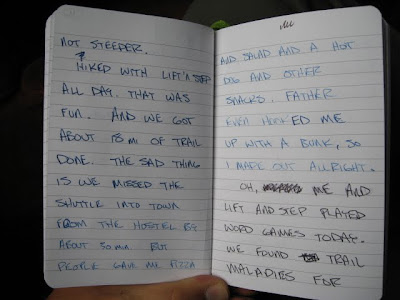 NOT STEEPER.
I HIKED WITH LIFT'N STEP
ALL DAY. THAT WAS
FUN. AND WE GOT
ABOUT 18 MI OF TRAIL
DONE. THE SAD THING
IS WE MISSED THE
SHUTTLE INTO TOWN
FROM THE HOSTEL BY
ABOUT 30 MIN. BUT
PEOPLE GAVE ME PIZZA
AND SALAD AND A HOT
DOG AND OTHER
SNACKS. FATHER
EVEN HOOKED ME
UP WITH A BUNK, SO
I MADE OUT ALLRIGHT.
OH, ME AND
LIFT AND STEP PLAYED
WORD GAMES TODAY.
WE FOUND TRAIL
MALADIES FOR